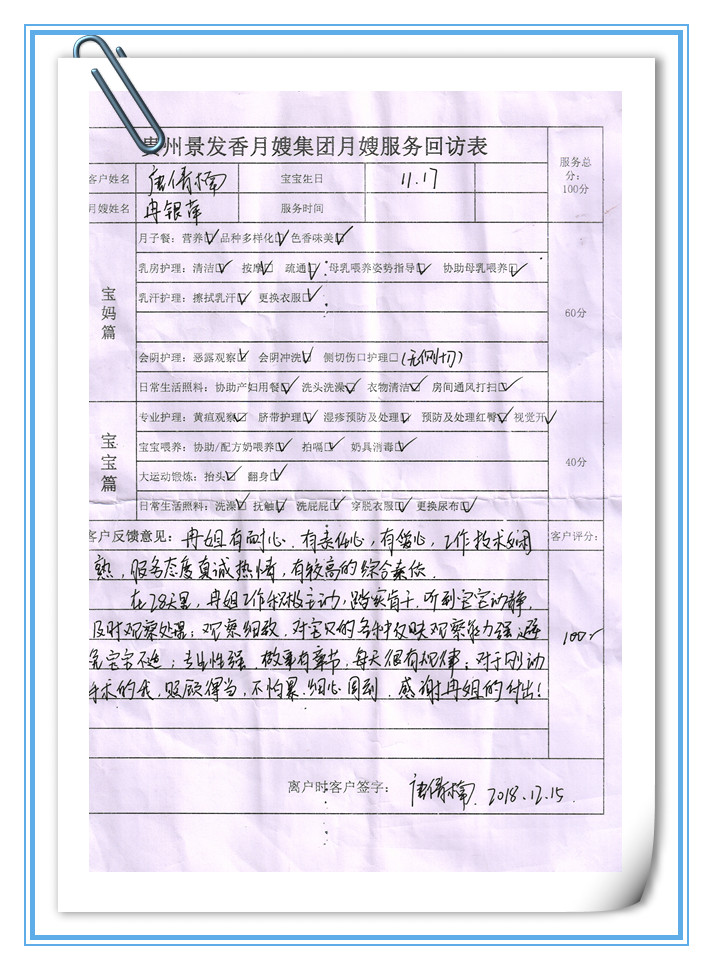 贵州景发香月嫂集团月嫂服务回访表
客户姓名 唐倩楠 宝宝生日 11.17 服务总分：100分
月嫂姓名 冉银萍 服务时间
宝妈篇
月子餐：营养☑ 品种多样化☑ 色香味美☑
乳房护理：清洁☑ 按摩☑ 疏通☑ 母乳喂养姿势指导☑ 协助母乳喂养☑
乳汗护理：擦拭乳汗☑ 更换衣服☑
60分
会阴护理：恶露观察☑ 会阴冲洗☑ 侧切伤口护理□（无侧切）
日常生活照料：协助产妇用餐☑ 洗头洗澡☑ 衣物清洁☑ 房间通风打扫☑
宝宝篇
专业护理：黄疸观察☑ 脐带护理☑ 湿疹预防及处理☑ 预防及处理红臀☑ 视觉开
宝宝喂养：协助/配方奶喂养☑ 拍嗝☑ 奶具消毒☑
40分
大运动锻炼：抬头☑ 翻身☑
日常生活照料：洗澡☑ 抚触☑ 洗屁屁☑ 穿脱衣服☑ 更换尿布☑
客户反馈意见：冉姐有耐心、有责任心，有爱心，工作技术娴 客户评分：
熟，服务态度真诚热情，有较高的综合素质。
在28天里，冉姐工作积极主动，踏实肯干，听到宝宝动静，
及时观察处理；观察细致，对宝贝的各种反映观察能力强，避 100分
免宝宝不适；专业性强，做事有章节，每天很有规律；对于刚动
手术的我，照顾得当，不怕累，细心周到，感谢冉姐的付出！
离户时客户签字：唐倩楠 2018.12.15.